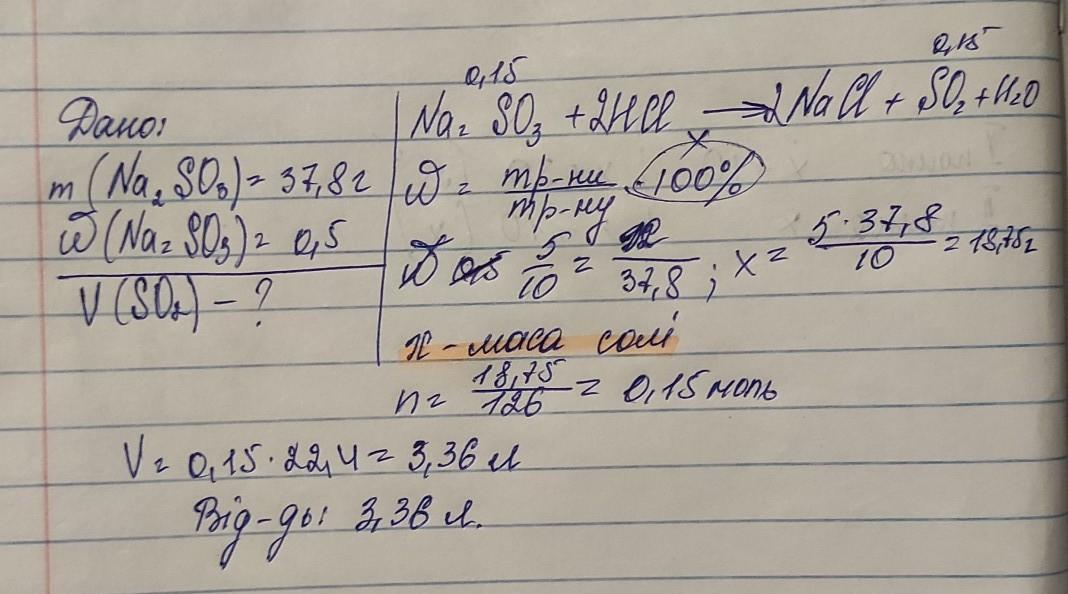 Дано:
m (Na₂SO₃) = 37,8 г
ω (Na₂SO₃) = 0,5
V (SO₂) - ?
0,15 0,15
Na₂SO₃ + 2HCl → 2NaCl + SO₂ + H₂O
ω = mр-ни / mр-ну · 100%
x
5/10 = x/37,8 ; x = 5·37,8/10 = 18,75г
x - маса солі
n = 18,75/126 = 0,15 моль
V = 0,15·22,4 = 3,36 л
Від-дь: 3,36 л.